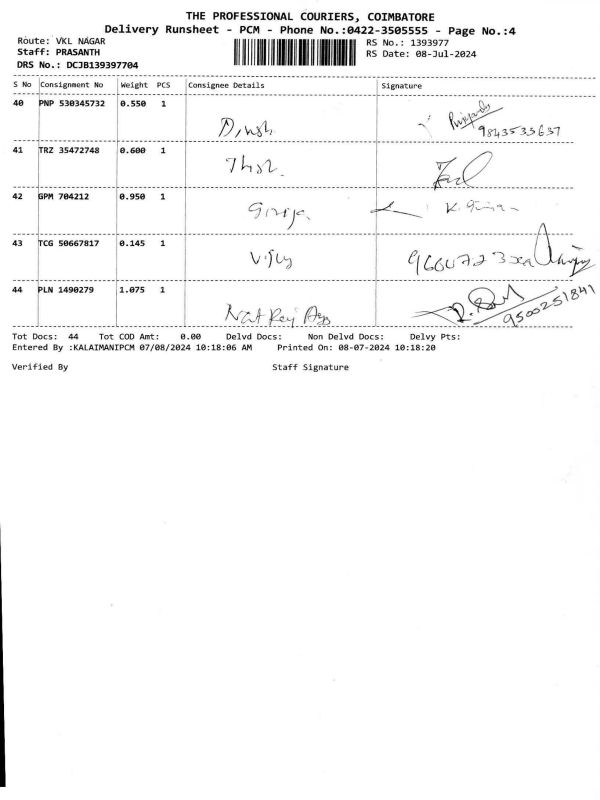 THE PROFESSIONAL COURIERS, COIMBATORE
Delivery Runsheet - PCM - Phone No.:0422-3505555 - Page No.:4
Route: VKL NAGAR
RS No.: 1393977
Staff: PRASANTH
RS Date: 08-Jul-2024
DRS No.: DCJB139397704
S No Consignment No Weight PCS Consignee Details Signature
40 PNP 530345732 0.550 1
9843533637
41 TRZ 35472748 0.600 1
42 GPM 704212 0.950 1
43 TCG 50667817 0.145 1
44 PLN 1490279 1.075 1
9500251841
Tot Docs: 44 Tot COD Amt: 0.00 Delvd Docs: Non Delvd Docs: Delvy Pts:
Entered By :KALAIMANIPCM 07/08/2024 10:18:06 AM Printed On: 08-07-2024 10:18:20
Verified By Staff Signature